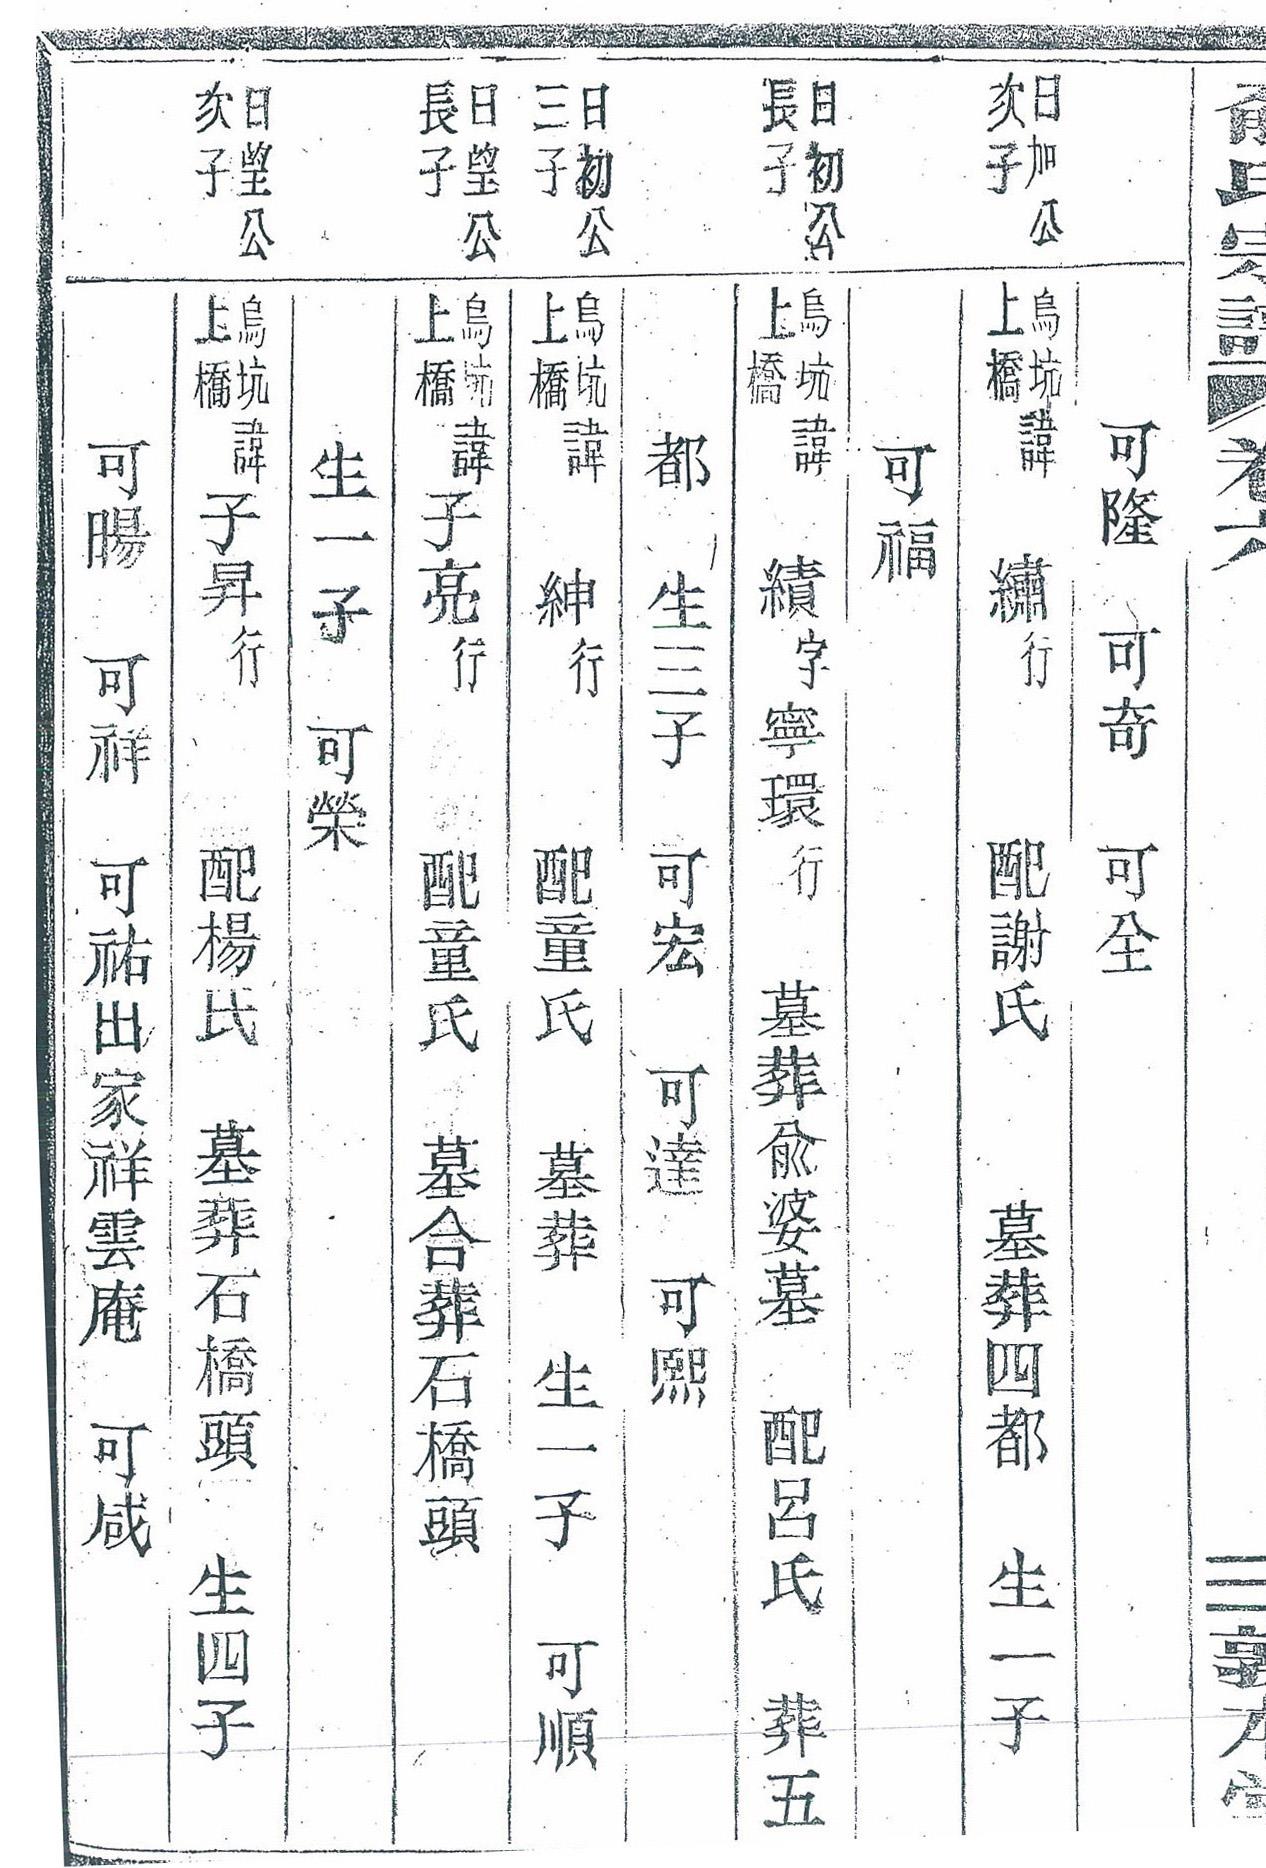 俞氏宗譜 卷六 三 敦本堂
可隆 可奇 可全
日加公次子 烏坑上橋 諱繡行 配謝氏 墓葬四都 生一子
可福
日初公長子 烏坑上橋 諱績字寧環行 墓葬俞婆墓 配呂氏 葬五
都 生三子 可宏 可達 可熙
日初公三子 烏坑上橋 諱紳行 配童氏 墓葬 生一子 可順
日望公長子 烏坑上橋 諱子亮行 配童氏 墓合葬石橋頭
生一子 可榮
日望公次子 烏坑上橋 諱子昇行 配楊氏 墓葬石橋頭 生四子
可暘 可祥 可祐出家祥雲庵 可咸